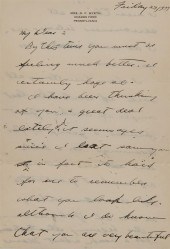 Friday
My dear
By this time you must be
feeling much better. I
certainly hope so.
I have been thinking
of you a great deal
lately, it seems ages
since I last saw you
in fact it is hard
for me to remember
what you look like,
although I do know
that you are very beautiful